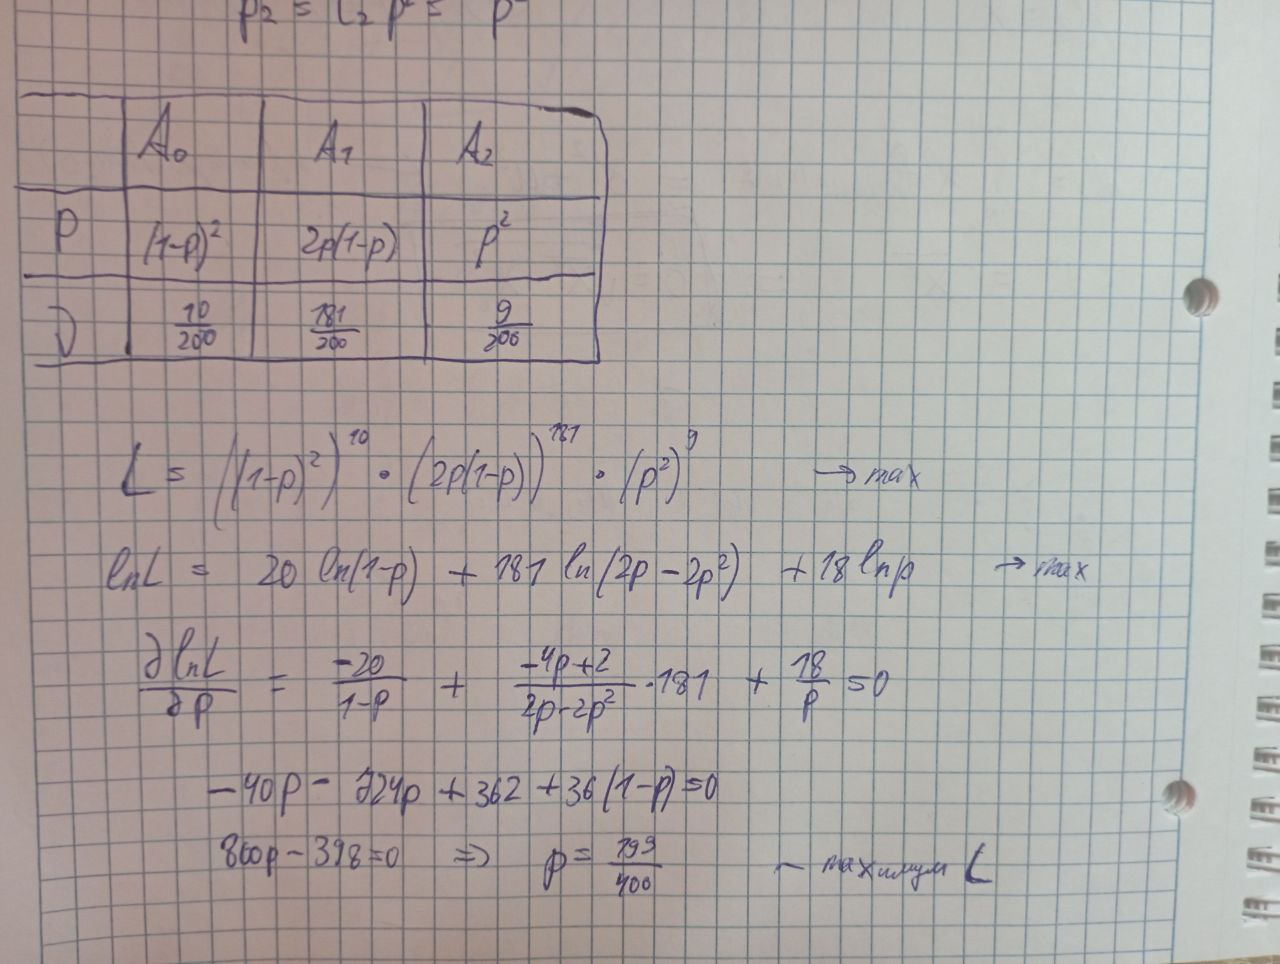 p₂ = C₂ p² = p²
A₀ A₁ A₂
P (1-p)² 2p(1-p) p²
ν 10/200 181/200 9/200
L = ((1-p)²)¹⁰ · (2p(1-p))¹⁸¹ · (p²)⁹ → max
lnL = 20 ln(1-p) + 181 ln(2p - 2p²) + 18 lnp → max
∂lnL/∂p = -20/1-p + -4p+2/2p-2p² · 181 + 18/p = 0
-40p - 724p + 362 + 36(1-p) = 0
800p - 398 = 0 ⇒ p = 199/400 - maxимум L